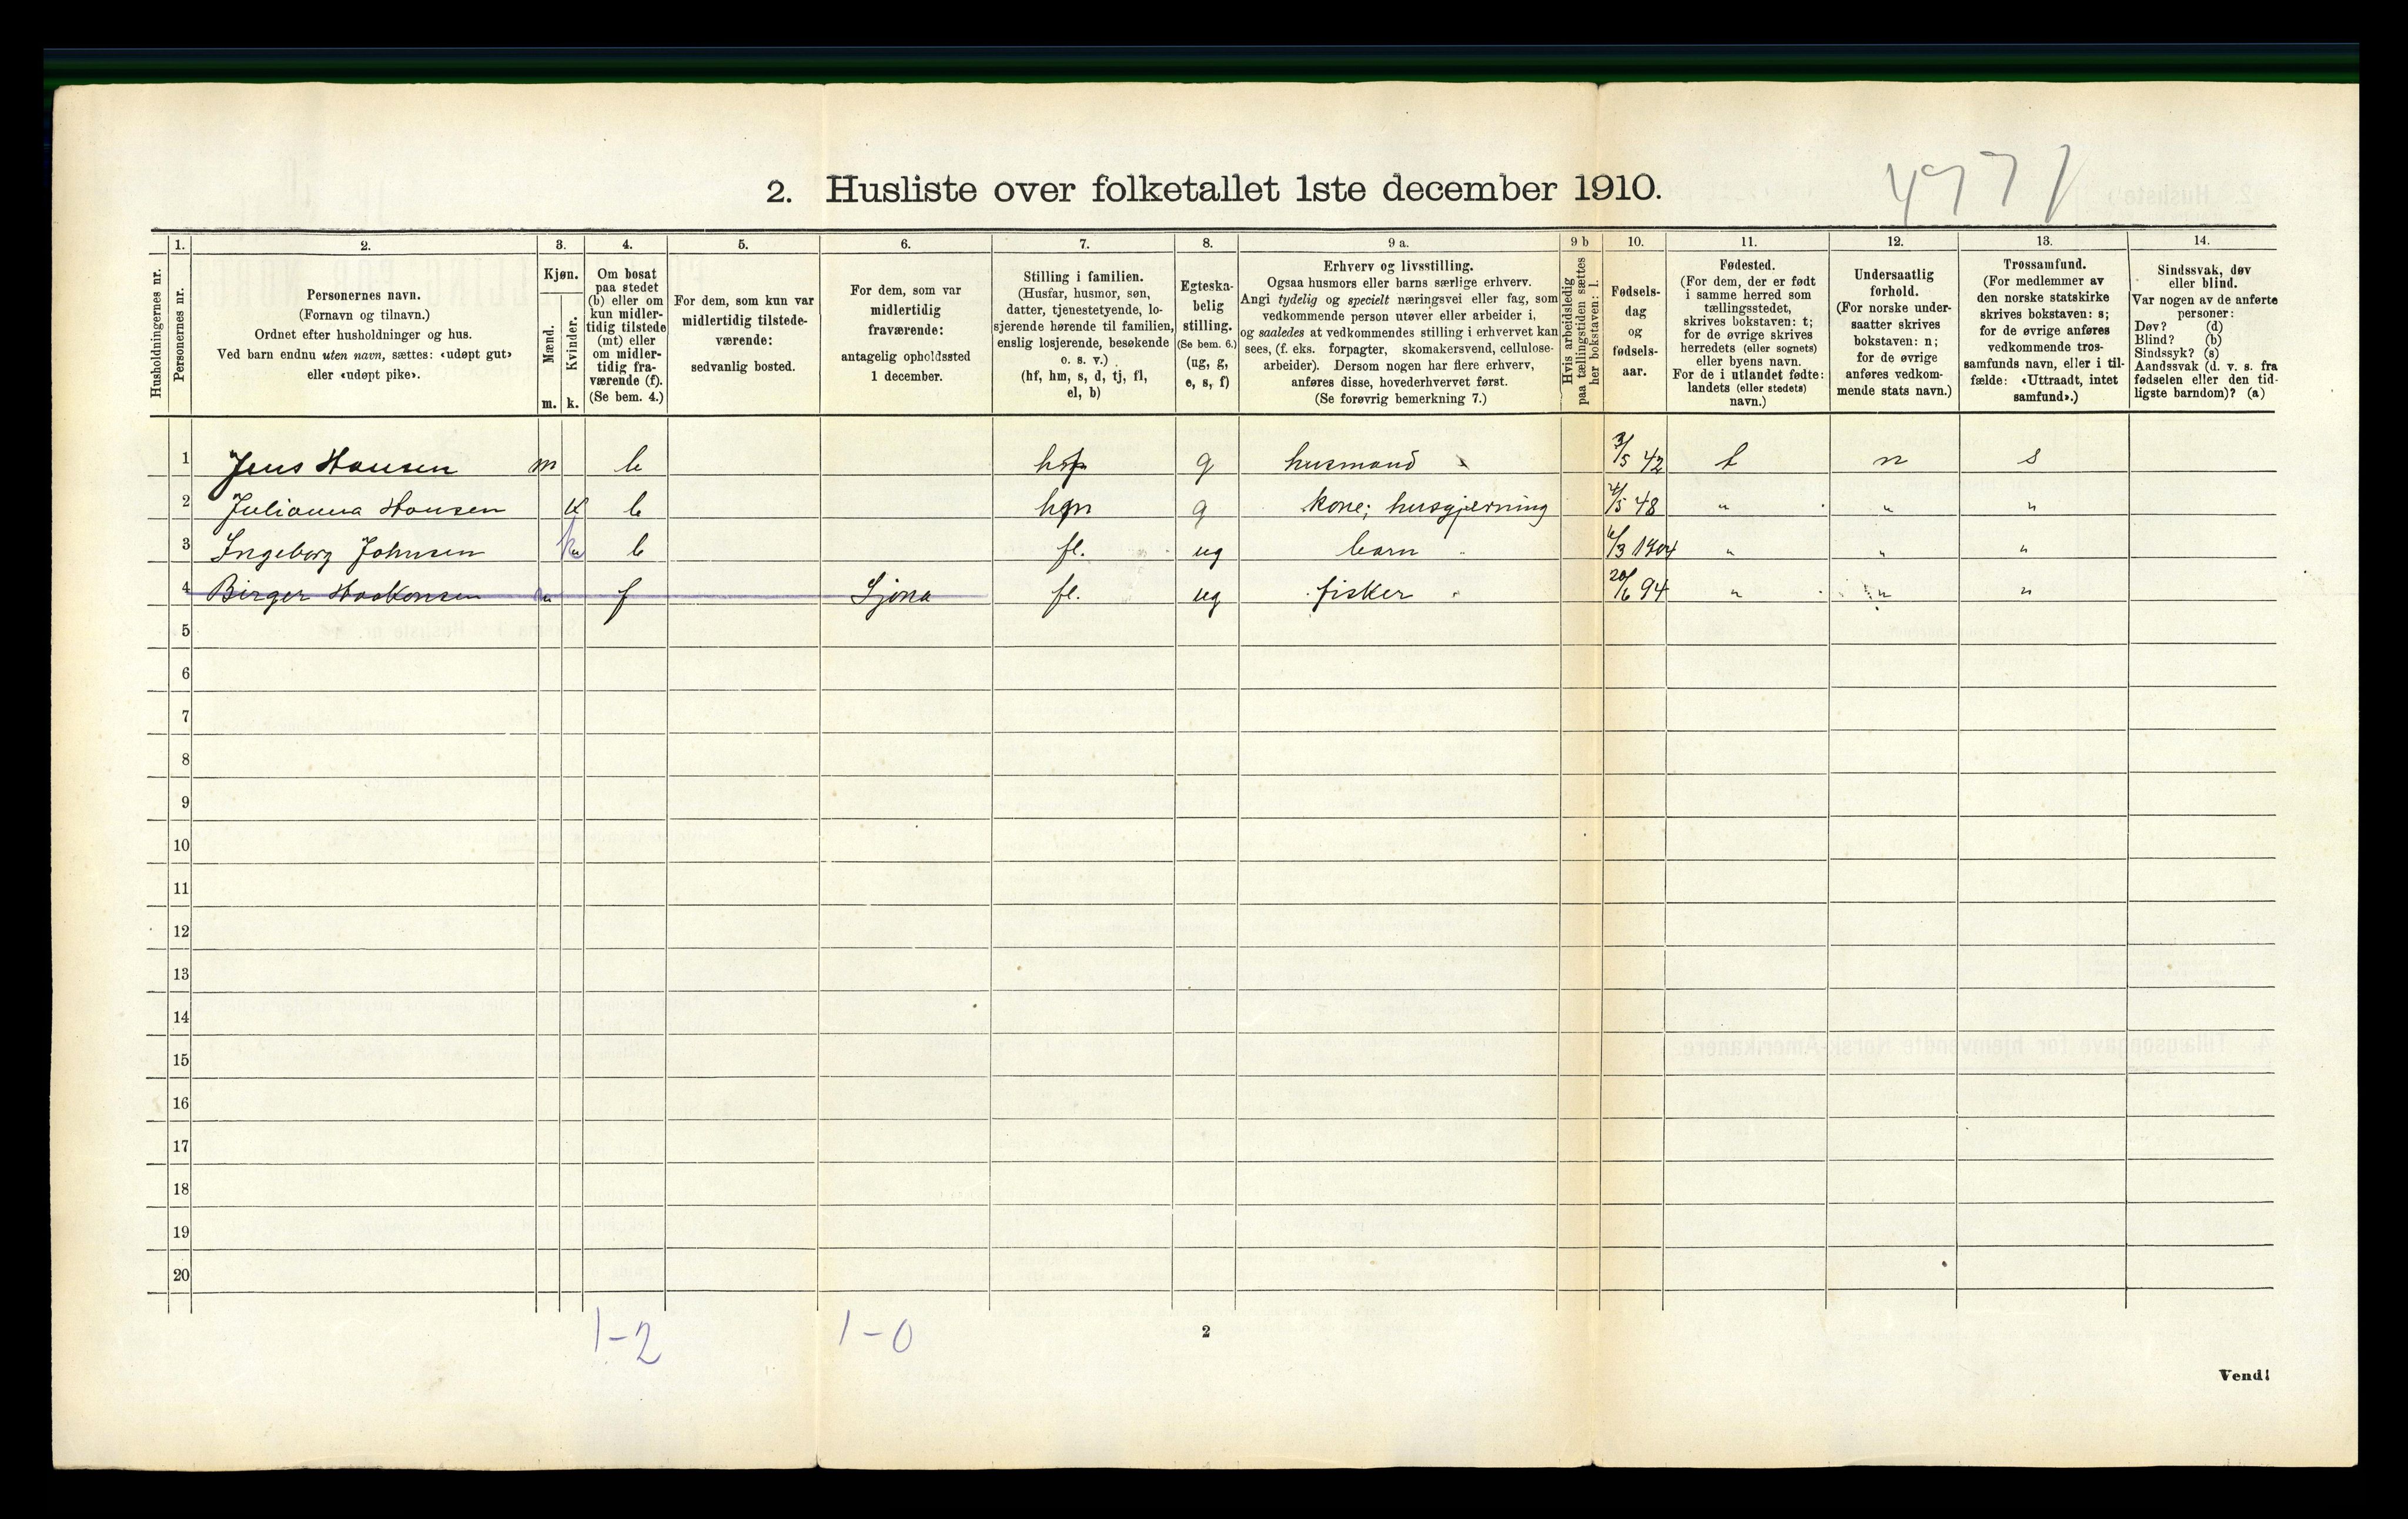 2. Husliste over folketallet 1ste december 1910.
1. 2. 3. 4. 5. 6. 7. 8. 9 a. 9 b 10. 11. 12. 13. 14.
Husholdningernes nr.
Personernes nr.
Personernes navn.
(Fornavn og tilnavn.)
Ordnet efter husholdninger og hus.
Ved barn endnu uten navn, sættes: «udøpt gut»
eller «udøpt pike».
Kjøn.
Mænd.
Kvinder.
m. k.
Om bosat
paa stedet
(b) eller om
kun midler-
tidig tilstede
(mt) eller
om midler-
tidig fra-
værende (f).
(Se bem. 4.)
For dem, som kun var
midlertidig tilstede-
værende:
sedvanlig bosted.
For dem, som var
midlertidig
fraværende:
antagelig opholdssted
1 december.
Stilling i familien.
(Husfar, husmor, søn,
datter, tjenestetyende, lo-
sjerende hørende til familien,
enslig losjerende, besøkende
o. s. v.)
(hf, hm, s, d, tj, fl,
el, b)
Egteska-
belig
stilling.
(Se bem. 6.)
(ug, g,
e, s, f)
Erhverv og livsstilling.
Ogsaa husmors eller barns særlige erhverv.
Angi tydelig og specielt næringsvei eller fag, som
vedkommende person utøver eller arbeider i,
og saaledes at vedkommendes stilling i erhvervet kan
sees, (f. eks. forpagter, skomakersvend, cellulose-
arbeider). Dersom nogen har flere erhverv,
anføres disse, hovederhvervet først.
(Se forøvrig bemerkning 7.)
Hvis arbeidsledig
paa tællingstiden sættes
her bokstaven: l.
Fødsels-
dag
og
fødsels-
aar.
Fødested.
(For dem, der er født
i samme herred som
tællingsstedet,
skrives bokstaven: t;
for de øvrige skrives
herredets (eller sognets)
eller byens navn.
For de i utlandet fødte:
landets (eller stedets)
navn.)
Undersaatlig
forhold.
(For norske under-
saatter skrives
bokstaven: n;
for de øvrige
anføres vedkom-
mende stats navn.)
Trossamfund.
(For medlemmer av
den norske statskirke
skrives bokstaven: s;
for de øvrige anføres
vedkommende tros-
samfunds navn, eller i til-
fælde: «Uttraadt, intet
samfund».)
Sindssvak, døv
eller blind.
Var nogen av de anførte
personer:
Døv? (d)
Blind? (b)
Sindssyk? (s)
Aandssvak (d. v. s. fra
fødselen eller den tid-
ligste barndom)? (a)
1 Jens Hansen m b g husmand 3/5 42 t n s
2 Julianna Hansen k b g kone; husgjerning 4/5 48 " " "
3 Ingeborg Johnsen k b fl. ug barn 6/3 1904 " " "
4 Birger Haakonsen m f Sjona fl. ug fisker 20/6 94 " " "
5
6
7
8
9
10
11
12
13
14
15
16
17
18
19
20
1-2 1-0
2
Vend!